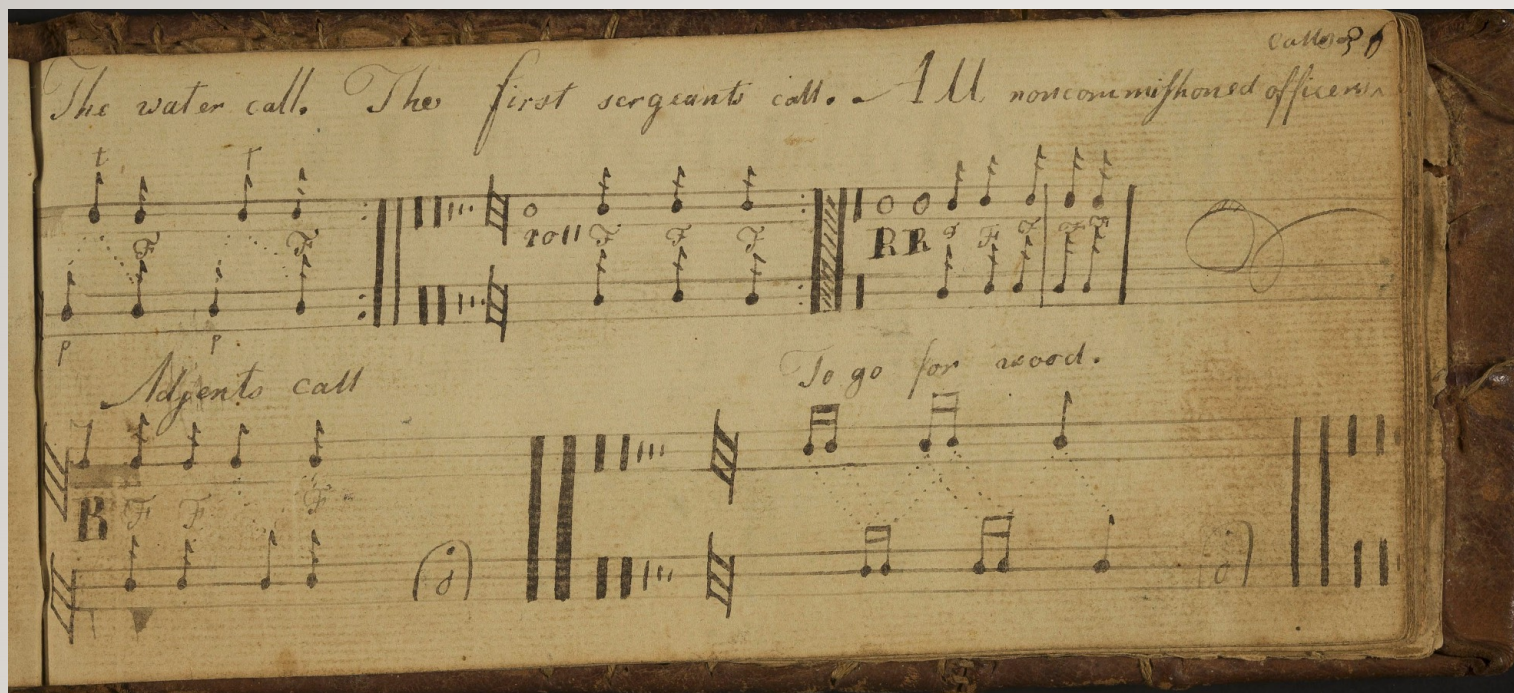 Calls
The water call. The first sergeants call. All noncommishoned officers
t t
F F roll F F F R R F F F F F
p p
Adjents call To go for wood.
R F F F